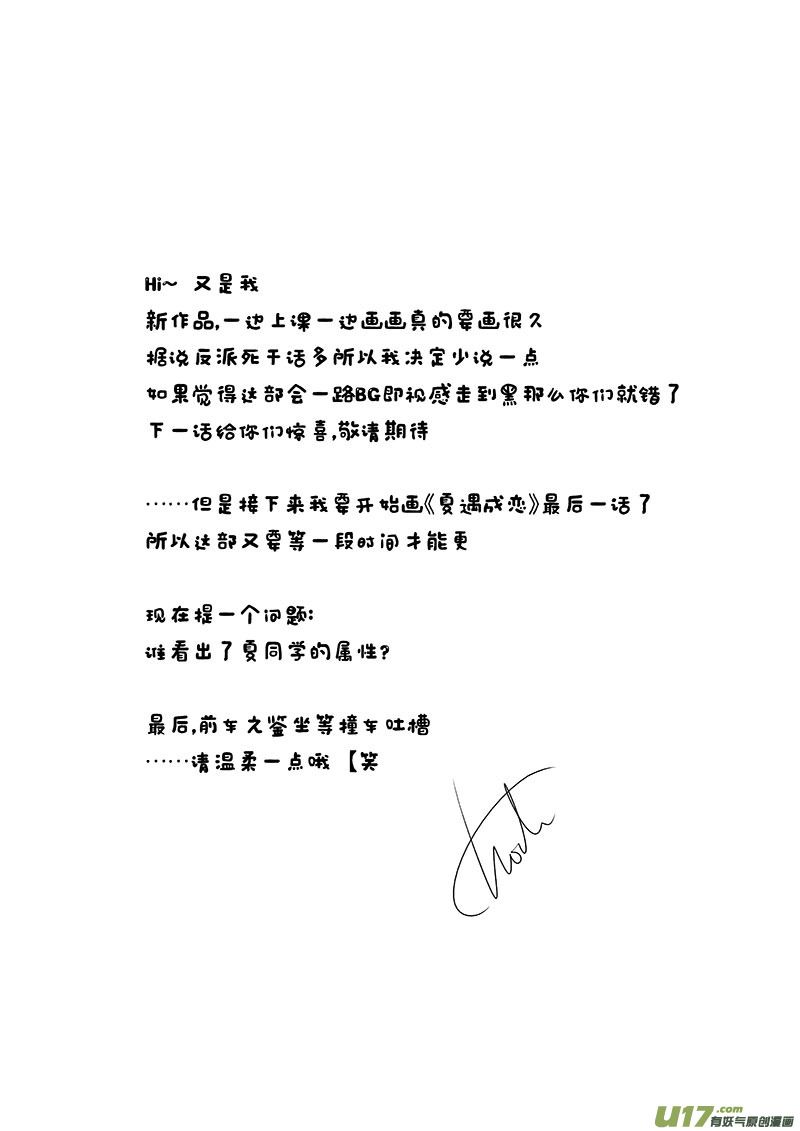 Hi~ 又是我
新作品,一边上课一边画画真的要画很久
据说反派死于话多所以我决定少说一点
如果觉得这部会一路BG即视感走到黑那么你们就错了
下一话给你们惊喜,敬请期待
……但是接下来我要开始画《夏遇成恋》最后一话了
所以这部又要等一段时间才能更
现在提一个问题:
谁看出了夏同学的属性?
最后,前车之鉴坐等撞车吐槽
……请温柔一点哦 【笑
U17.com
有妖气原创漫画